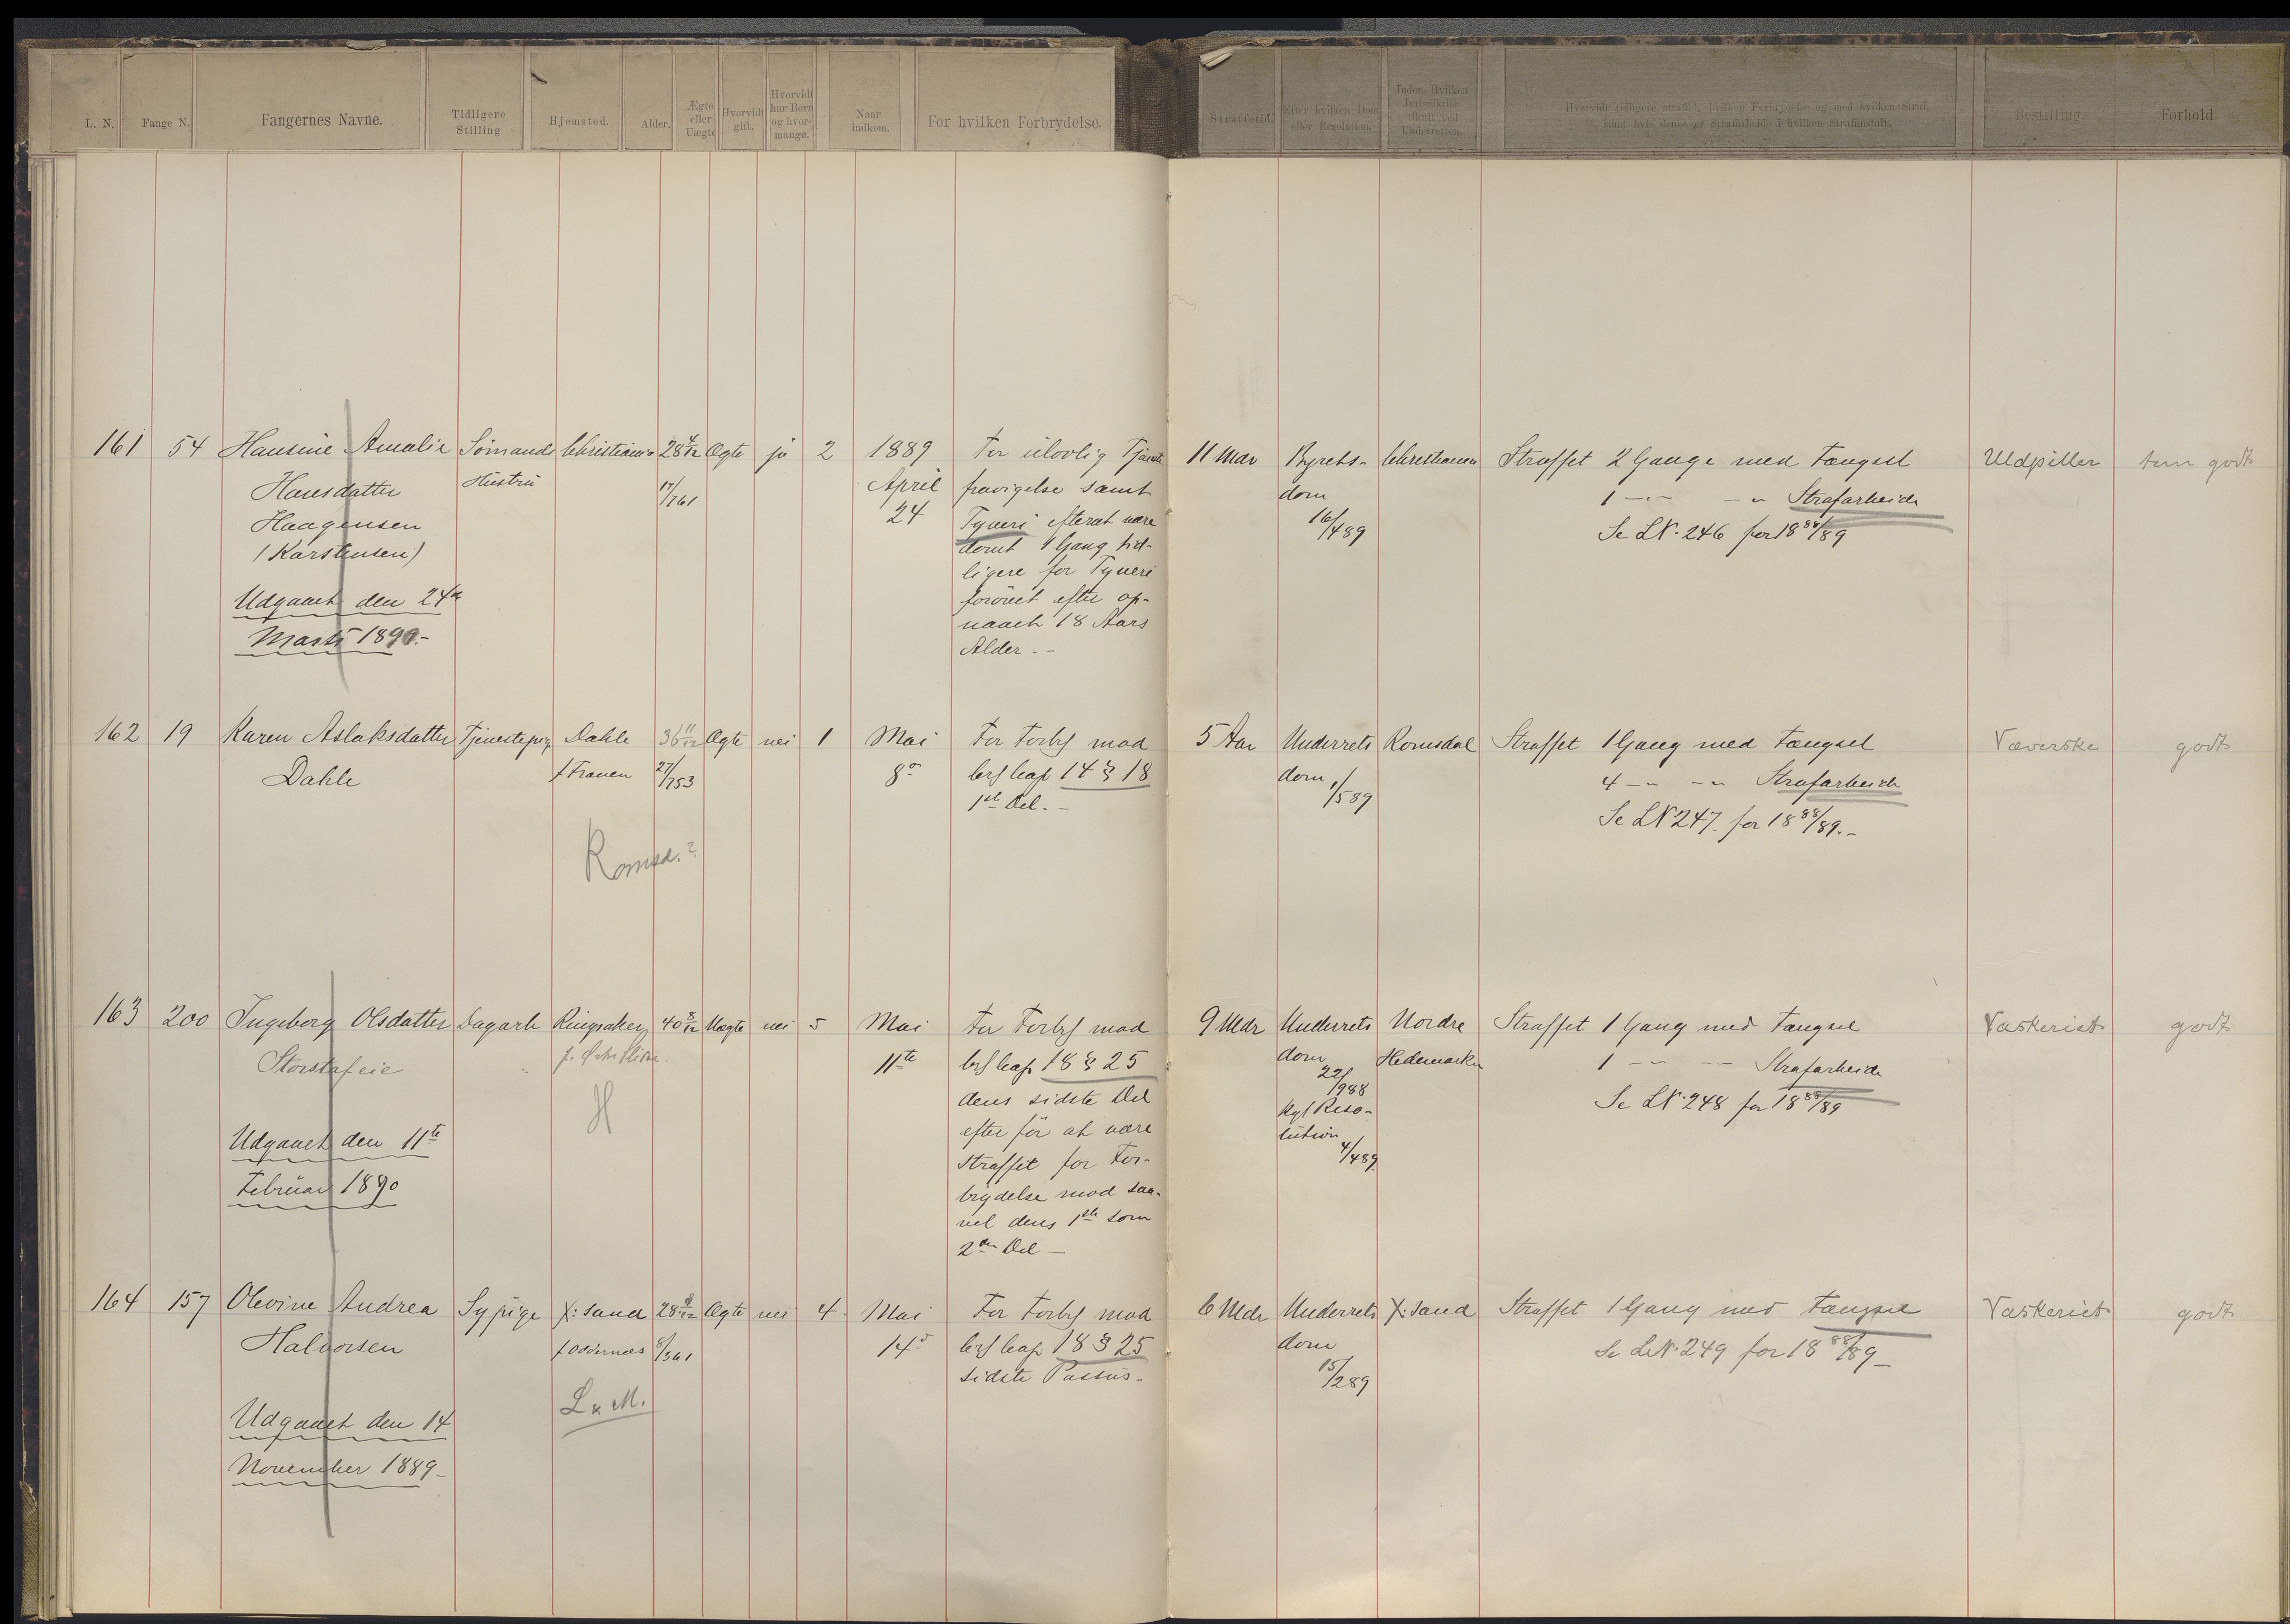 L. N. Fange N. Fangernes Navne. Tidligere Stilling Hjemsted. Alder. Ægte eller Uægte Hvorvidt gift. Hvorvidt har Børn og hvormange. Naar indkom. For hvilken Forbrydelse. Straffetid. Efter hvilken Dom eller Resolution. Inden Hvilken Jurisdiktion tiltalt ved Underretten. Hvorvidt tidligere straffet, hvilken Forbrydelse og med hvilken Straf, samt hvis denne er Strafarbeide i hvilken Strafanstalt. Bestilling Forhold
161 54 Hansine Amalie Sømands Christiania 28 4/12 Ægte ja 2 1889 For ulovlig Tjeneste 11 Mdr Byrets- Christiania Straffet 2 Gange med Fængsel Uldpiller godt
Hansdatter Hustru 17/761 April fravigelse samt dom 1 -"- -" Strafarbeide
Haagensen 24 Tyveri efterat være 16/489 Se LN. 246 for 18 88/89
(Karstensen) dømt 1 Gang tid-
ligere for Tyveri
Udgaaet den 24de forøvet efter op-
Marts 1890.- naaet 18 Aars
Alder. -
162 19 Karen Aslaksdatter Tjenestepig Dahle 36 11/12 Ægte nei 1 Mai For Forbr mod 5 Aar Underrets Romsdal Straffet 1 Gang med Fængsel Væverske godt
Dahle f Franen 27/753 8de Crf Cap 14 § 18 dom 1/589 4 -" -" Strafarbeide
1ste Del. - Se LN 247 for 18 88/89.-
Romsd.?
163 200 Ingeborg Olsdatter Dagarb Ringsaker 40 8/12 Uægte nei 5 Mai For Forbr mod 9 Mdr Underrets Nordre Straffet 1 Gang med Fængsel Vaskeriet godt
Storstafeie 11te Crf Cap 18 § 25 dom Hedemarken 1 -" -- Strafarbeide
H dens sidste Del 22/988 Se LN. 248 for 18 88/89
efter før at være Kgl Reso-
Udgaaet den 11te straffet for For- lution 4/489
Februar 1890 brydelse mod saa-
vel dens 1ste som
2den Del -
164 157 Olevine Andrea Sypige X:sand 28 8/12 Ægte nei 4 Mai For Forbr mod 6 Mdr Underrets X:sand Straffet 1 Gang med Fængsel Vaskeriet godt
Halvorsen f Oddernæs 8/361 14de Crf Cap 18 § 25 dom Se LN. 249 for 18 88/89 -
sidste Passus - 15/289
L & M.
Udgaaet den 14
November 1889 -